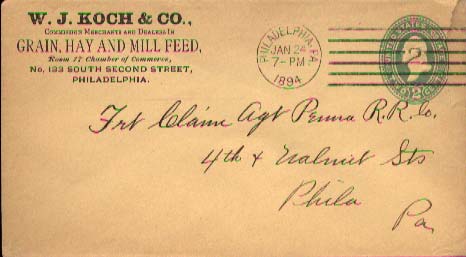 W. J. KOCH & CO.,
COMMISSION MERCHANTS AND DEALERS IN
GRAIN, HAY AND MILL FEED,
Room 17 Chamber of Commerce,
No. 133 SOUTH SECOND STREET,
PHILADELPHIA.
PHILADELPHIA, PA.
JAN 24
7-PM
1894
UNITED STATES
2
Frt Claim Agt Penna R.R. Co.
4th & Walnut Sts
Phila
Pa